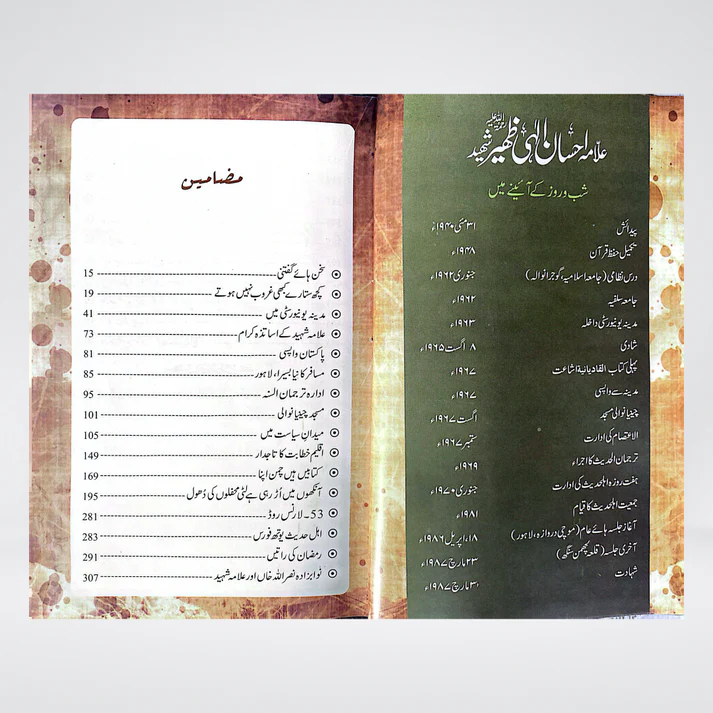 علامہ احسان الہٰی ظہیر شہید رحمۃ اللہ علیہ
شب و روز کے آئینے میں
پیدائش ۳۱ مئی ۱۹۴۰ء
تکمیل حفظ قرآن ۱۹۴۸ء
درس نظامی (جامعہ اسلامیہ، گوجرانوالہ) جنوری ۱۹۶۲ء
جامعہ سلفیہ ۱۹۶۲ء
مدینہ یونیورسٹی داخلہ ۱۹۶۳ء
شادی ۸ اگست ۱۹۶۵ء
پہلی کتاب القادیانیۃ اشاعت ۱۹۶۷ء
مدینہ سے واپسی ۱۹۶۷ء
چینیانوالی مسجد اگست ۱۹۶۷ء
الاعتصام کی ادارت ستمبر ۱۹۶۷ء
ترجمان الحدیث کا اجراء ۱۹۶۹ء
ہفت روزہ اہلحدیث کی ادارت جنوری ۱۹۷۰ء
جمعیت اہلحدیث کا قیام ۱۹۸۱ء
آغاز جلسہ ہائے عام (موچی دروازہ، لاہور) ۱۸، اپریل ۱۹۸۶ء
آخری جلسہ (قلعہ لچھمن سنگھ) ۲۳ مارچ ۱۹۸۷ء
شہادت مارچ ۱۹۸۷ء
مضامین
سخن ہائے گفتنی 15
کچھ ستارے کبھی غروب نہیں ہوتے 19
مدینہ یونیورسٹی میں 41
علامہ شہید کے اساتذہ کرام 73
پاکستان واپسی 81
مسافر کا نیا بسیرا، لاہور 85
ادارہ ترجمان السنہ 95
مسجد چینیانوالی 101
میدانِ سیاست میں 105
اقلیم خطابت کا تاجدار 149
کتابیں ہیں چمن اپنا 169
آنکھوں میں اُڑ رہی ہے لٹی محفلوں کی دُھول 195
53 ۔ لارنس روڈ 281
اہل حدیث یوتھ فورس 283
رمضان کی راتیں 291
نوابزادہ نصر اللہ خاں اور علامہ شہید 307